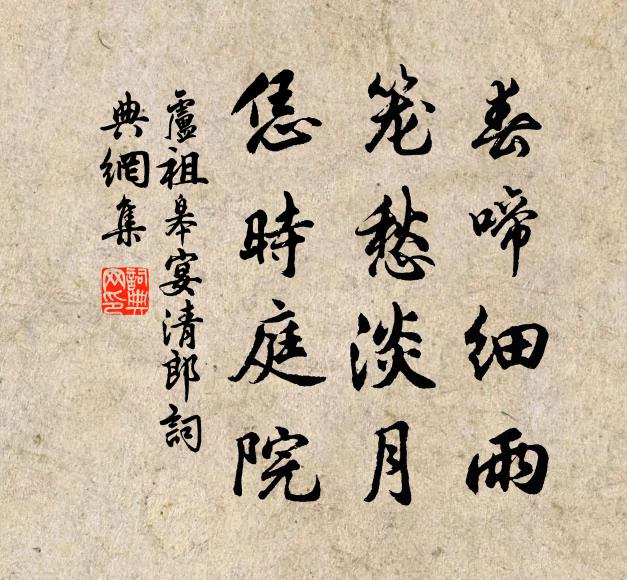 春啼細雨
笼愁淡月
恁時庭院
盧祖皋宴清郎詞
典網集
詞典
网印